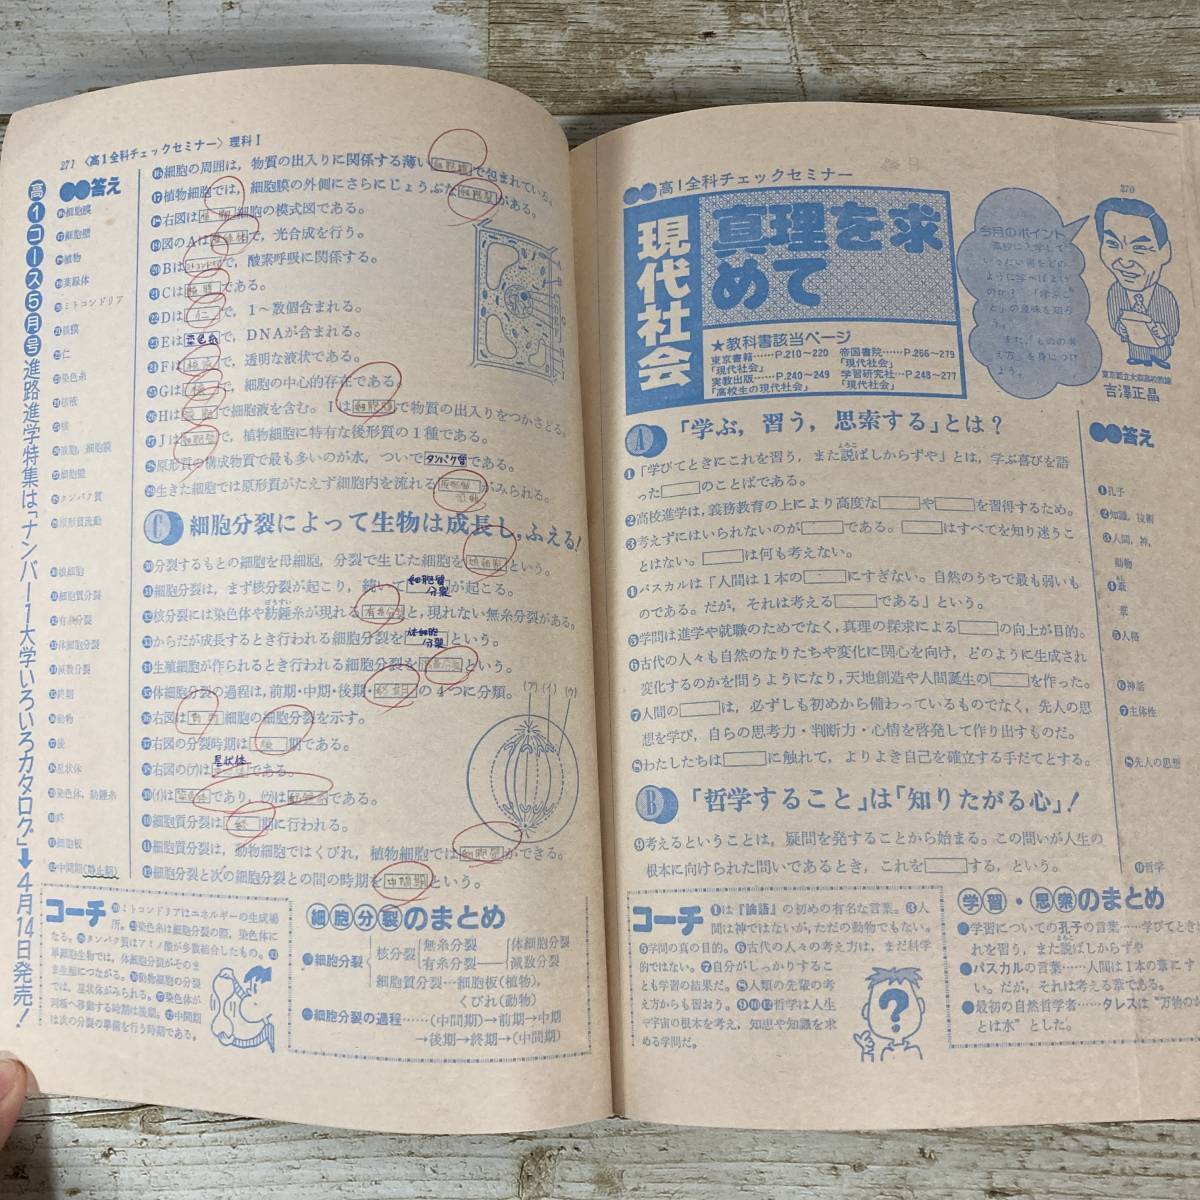 270
高1全科チェックセミナー
現代社会
真理を求
めて
★教科書該当ページ
東京書籍……P.210〜220
「現代社会」
実教出版……P.240〜249
「高校生の現代社会」
帝国書院………P.266〜279
「現代社会」
学習研究社…P.248〜277
「現代社会」
今月のポイント
吉澤正晶
A 「学ぶ，習う，思索する」とは？
❶「学びてときにこれを習う，また説ばしからずや」とは，学ぶ喜びを語
よろこ
った のことばである。
❷高校進学は，義務教育の上により高度な や を習得するため。
❸考えずにはいられないのが である。 はすべてを知り迷うこ
とはない。 は何も考えない。
❹パスカルは「人間は1本の にすぎない。自然のうちで最も弱いも
のである。だが，それは考える である」という。
❺学問は進学や就職のためでなく，真理の探求による の向上が目的。
❻古代の人々も自然のなりたちや変化に関心を向け，どのように生成され
変化するのかを問うようになり，天地創造や人間誕生の を作った。
❼人間の は，必ずしも初めから備わっているものでなく，先人の思
想を学び，自らの思考力・判断力・心情を啓発して作り出すものだ。
❽わたしたちは に触れて，よりよき自己を確立する手だてとする。
B 「哲学すること」は「知りたがる心」！
❾考えるということは，疑問を発することから始まる。この問いが人生の
根本に向けられた問いであるとき，これを する，という。
答え
❶孔子
❷知識，技術
❸人間，神，
動物
❹葦
葦
❺人格
❻神話
❼主体性
❽先人の思想
❾哲学
コーチ
❶は『論語』の初めの有名な言葉。❸人
間は神ではないが，ただの動物でもない。
❺学問の真の目的。❻古代の人々の考え方は，まだ科学
的ではない。❼自分がしっかりするこ
とも学習の結果だ。❽人類の先輩の考
え方からも習おう。❾❿⓬哲学は人生
や宇宙の根本を考え，知恵や知識を求
める学問だ。
学習・思索のまとめ
●学習についての孔子の言葉……学びてときに
れを習う，また説ばしからずや
●パスカルの言葉……人間は1本の葦にす
い。だが，それは考える葦である。
●最初の自然哲学者……タレスは“万物の
とは水”とした。
271 〈高1全科チェックセミナー〉理科Ⅰ
⓰細胞の周囲は，物質の出入りに関係する薄い 細胞膜 で包まれている。
⓱植物細胞では，細胞膜の外側にさらにじょうぶな 細胞壁 がある。
⓲右図は 植物 細胞の模式図である。
⓳図のAは 葉緑体 で，光合成を行う。
⓴Bは ミトコンドリア で，酸素呼吸に関係する。
㉑Cは 核膜 である。
㉒Dは 仁 で，1〜数個含まれる。
㉓Eは 染色糸 で，DNAが含まれる。
㉔Fは 核液 で，透明な液状である。
㉕Gは 核 で，細胞の中心的存在である。
㉖Hは 液胞 で細胞液を含む。Iは 細胞膜 で物質の出入りをつかさどる。
㉗Jは 細胞壁 で，植物細胞に特有な後形質の1種である。
㉘原形質の構成物質で最も多いのが水，ついで タンパク質 である。
㉙生きた細胞では原形質がたえず細胞内を流れる 原形質流動 がみられる。
C 細胞分裂によって生物は成長し，ふえる！
㉚分裂するもとの細胞を母細胞，分裂で生じた細胞を 娘細胞 という。
㉛細胞分裂は，まず核分裂が起こり，続いて 細胞質分裂 が起こる。
㉜核分裂には染色体や紡錘糸が現れる 有糸分裂 と，現れない無糸分裂がある。
ぼうすい
㉝からだが成長するとき行われる細胞分裂を 体細胞分裂 という。
㉞生殖細胞が作られるとき行われる細胞分裂を 減数分裂 という。
㉟体細胞分裂の過程は，前期・中期・後期・ 終期 の4つに分類。
㊱右図は 動物 細胞の細胞分裂を示す。
㊲右図の分裂時期は 後 期である。
㊳右図の(ア)は 星状体 である。
㊴(イ)は 染色体 であり，(ウ)は 紡錘糸 である。
㊵細胞質分裂は 終 期に行われる。
㊶細胞質分裂は，動物細胞ではくびれ，植物細胞では 細胞板 ができる。
㊷細胞分裂と次の細胞分裂との間の時期を 中間期 という。
(ア) (イ) (ウ)
答え
⓰細胞膜
⓱細胞壁
⓲植物
⓳葉緑体
⓴ミトコンドリア
㉑核膜
㉒仁
㉓染色糸
㉔核液
㉕核
㉖液胞，細胞膜
㉗細胞壁
㉘タンパク質
㉙原形質流動
㉚娘細胞
㉛細胞質分裂
㉜有糸分裂
㉝体細胞分裂
㉞減数分裂
㉟終期
㊱動物
㊲後
㊳星状体
㊴染色体，紡錘糸
㊵終
㊶細胞板
㊷中間期(静止期)
コーチ
⓴ミトコンドリアはエネルギーの生成場
所。㉓染色糸は細胞分裂の際，染色体に
なる。㉘タンパク質はアミノ酸が多数結合したもの。㉝
単細胞生物では，体細胞分裂がそのま
ま生殖につながる。㊱動物細胞の分裂
では，星状体がみられる。㊲染色体が
両極へ移動する時期は後期。㊷中間期
は次の分裂の準備を行う時期である。
細胞分裂のまとめ
●細胞分裂
核分裂
無糸分裂
有糸分裂
体細胞分裂
減数分裂
細胞質分裂…細胞板(植物)，
くびれ(動物)
●細胞分裂の過程……(中間期)→前期→中期
→後期→終期→(中間期)
高1コース5月号進路進学特集は「ナンバー1大学いろいろカタログ」➡4月14日発売！